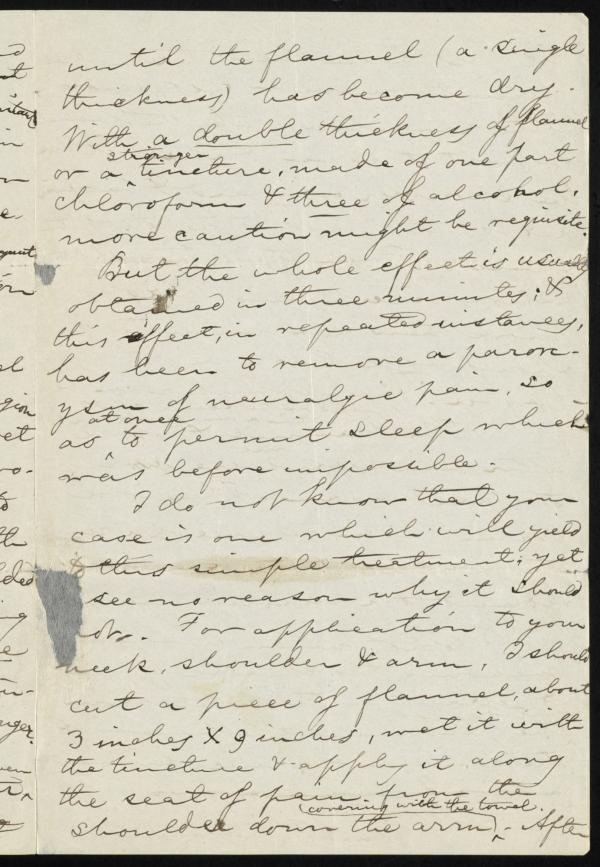 until the flannel (a single
thickness) has become dry.
With a double thickness of flannel
or a stronger tincture, made of one part
chloroform & three of alcohol,
more caution might be requisite.
But the whole effect is usually
obtained in three minutes; &
this effect, in repeated instances,
has been to remove a parox-
ysm of neuralgic pain, so
as at once to permit sleep which
was before impossible.
I do not know that your
case is one which will yield
to this simple treatment; yet
see no reason why it should
not. For application to your
neck, shoulder & arm, I should
cut a piece of flannel, about
3 inches X 9 inches, wet it with
the tincture & apply it along
the seat of pain from the
shoulder down the arm, (covering with the towel.) After